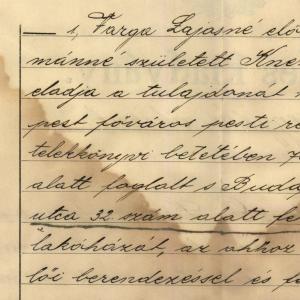 1, Varga Lajosné elő
mánné született Kne
eladja a tulajdonát
pest főváros pesti re
telekkönyvi betétében 7
alatt foglalt s Buda
utca 32 szám alatt fe
lakóházát, az ahhoz
lői berendezéssel és fe